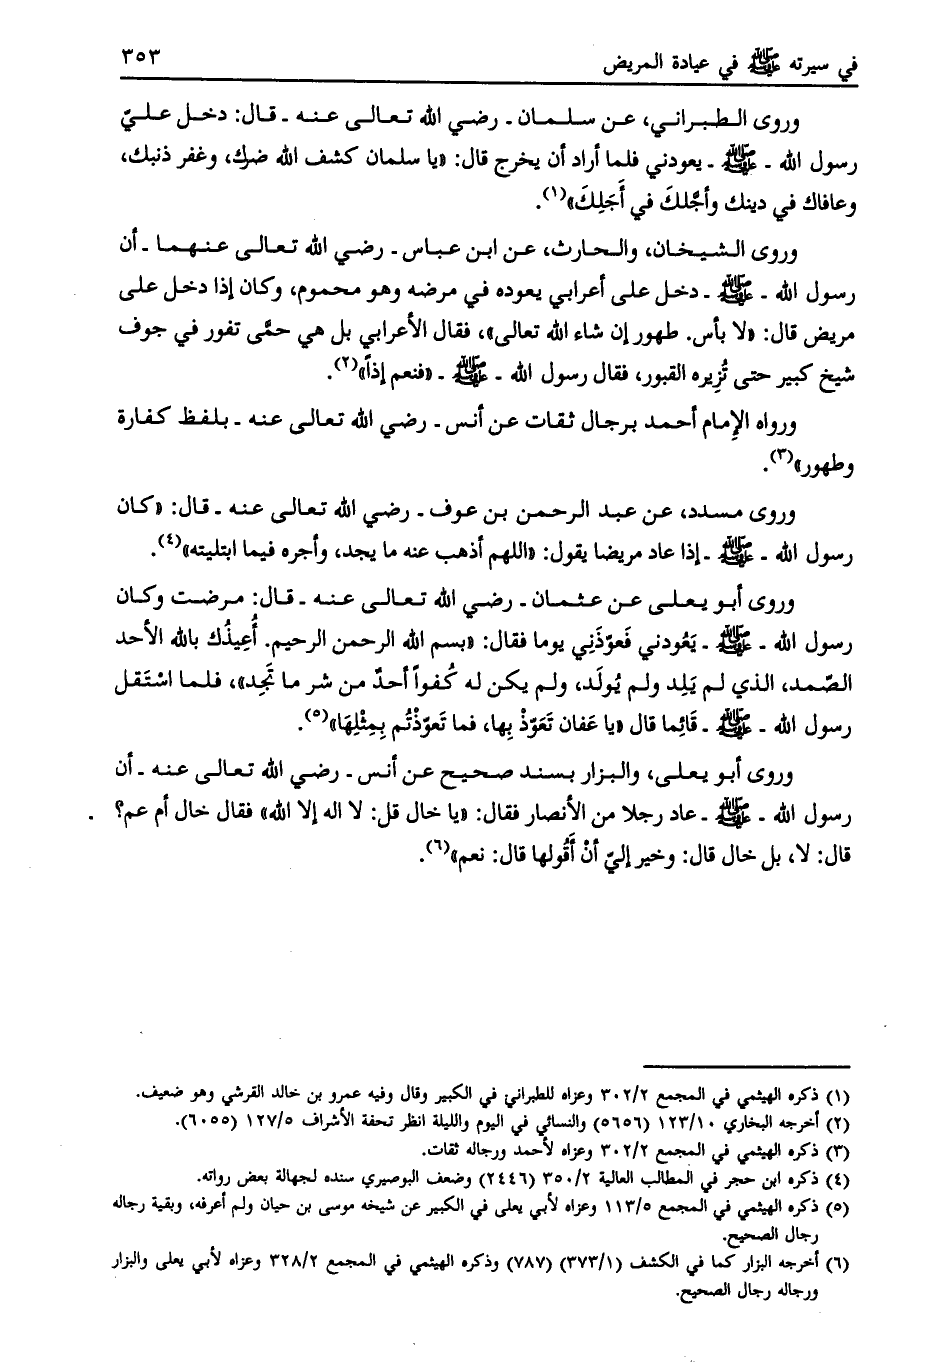 في سيرته ﷺ في عيادة المريض ٣٥٣
وروى الطبراني، عن سلمان ـ رضي الله تعالى عنه ـ قال: دخل عليّ
رسول الله ـ ﷺ ـ يعودني فلما أراد أن يخرج قال: «يا سلمان كشف الله ضرك، وغفر ذنبك،
وعافاك في دينك وأجَّلكَ في أَجَلِكَ»(١).
وروى الشيخان، والحارث، عن ابن عباس ـ رضي الله تعالى عنهما ـ أن
رسول الله ـ ﷺ ـ دخل على أعرابي يعوده في مرضه وهو محموم، وكان إذا دخل على
مريض قال: «لا بأس. طهور إن شاء الله تعالى»، فقال الأعرابي بل هي حمَّى تفور في جوف
شيخ كبير حتى تُزِيره القبور، فقال رسول الله ـ ﷺ ـ «فنعم إذاً»(٢).
ورواه الإمام أحمد برجال ثقات عن أنس ـ رضي الله تعالى عنه ـ بلفظ كفارة
وطهور»(٣).
وروى مسدد، عن عبد الرحمن بن عوف ـ رضي الله تعالى عنه ـ قال: «كان
رسول الله ـ ﷺ ـ إذا عاد مريضا يقول: «اللهم أذهب عنه ما يجد، وأجره فيما ابتليته»(٤).
وروى أبو يعلى عن عثمان ـ رضي الله تعالى عنه ـ قال: مرضت وكان
رسول الله ـ ﷺ ـ يَعُودني فَعوّذَنِي يوما فقال: «بسم الله الرحمن الرحيم. أُعِيذُك بالله الأحد
الصّمد، الذي لم يَلِد ولم يُولَد، ولم يكن له كُفواً أحدٌ من شر ما تَجِد»، فلما اسْتَقل
رسول الله ـ ﷺ ـ قَائِما قال «يا عَفان تَعَوّذْ بِها، فما تَعوّذْتُم بِمِثْلِهَا»(٥).
وروى أبو يعلى، والبزار بسند صحيح عن أنس ـ رضي الله تعالى عنه ـ أن
رسول الله ـ ﷺ ـ عاد رجلا من الأنصار فقال: «يا خال قل: لا اله إلا الله» فقال خال أم عم؟
قال: لا، بل خال قال: وخير إليّ أنْ أَقُولها قال: نعم»(٦).
(١) ذكره الهيثمي في المجمع ٣٠٢/٢ وعزاه للطبراني في الكبير وقال وفيه عمرو بن خالد القرشي وهو ضعيف.
(٢) أخرجه البخاري ١٢٣/١٠ (٥٦٥٦) والنسائي في اليوم والليلة انظر تحفة الأشراف ١٢٧/٥ (٦٠٥٥).
(٣) ذكره الهيثمي في المجمع ٣٠٢/٢ وعزاه لأحمد ورجاله ثقات.
(٤) ذكره ابن حجر في المطالب العالية ٣٥٠/٢ (٢٤٤٦) وضعف البوصيري سنده لجهالة بعض رواته.
(٥) ذكره الهيثمي في المجمع ١١٣/٥ وعزاه لأبي يعلى في الكبير عن شيخه موسى بن حيان ولم أعرفه، وبقية رجاله
رجال الصحيح.
(٦) أخرجه البزار كما في الكشف (٣٧٣/١) (٧٨٧) وذكره الهيثمي في المجمع ٣٢٨/٢ وعزاه لأبي يعلى والبزار
ورجاله رجال الصحيح.